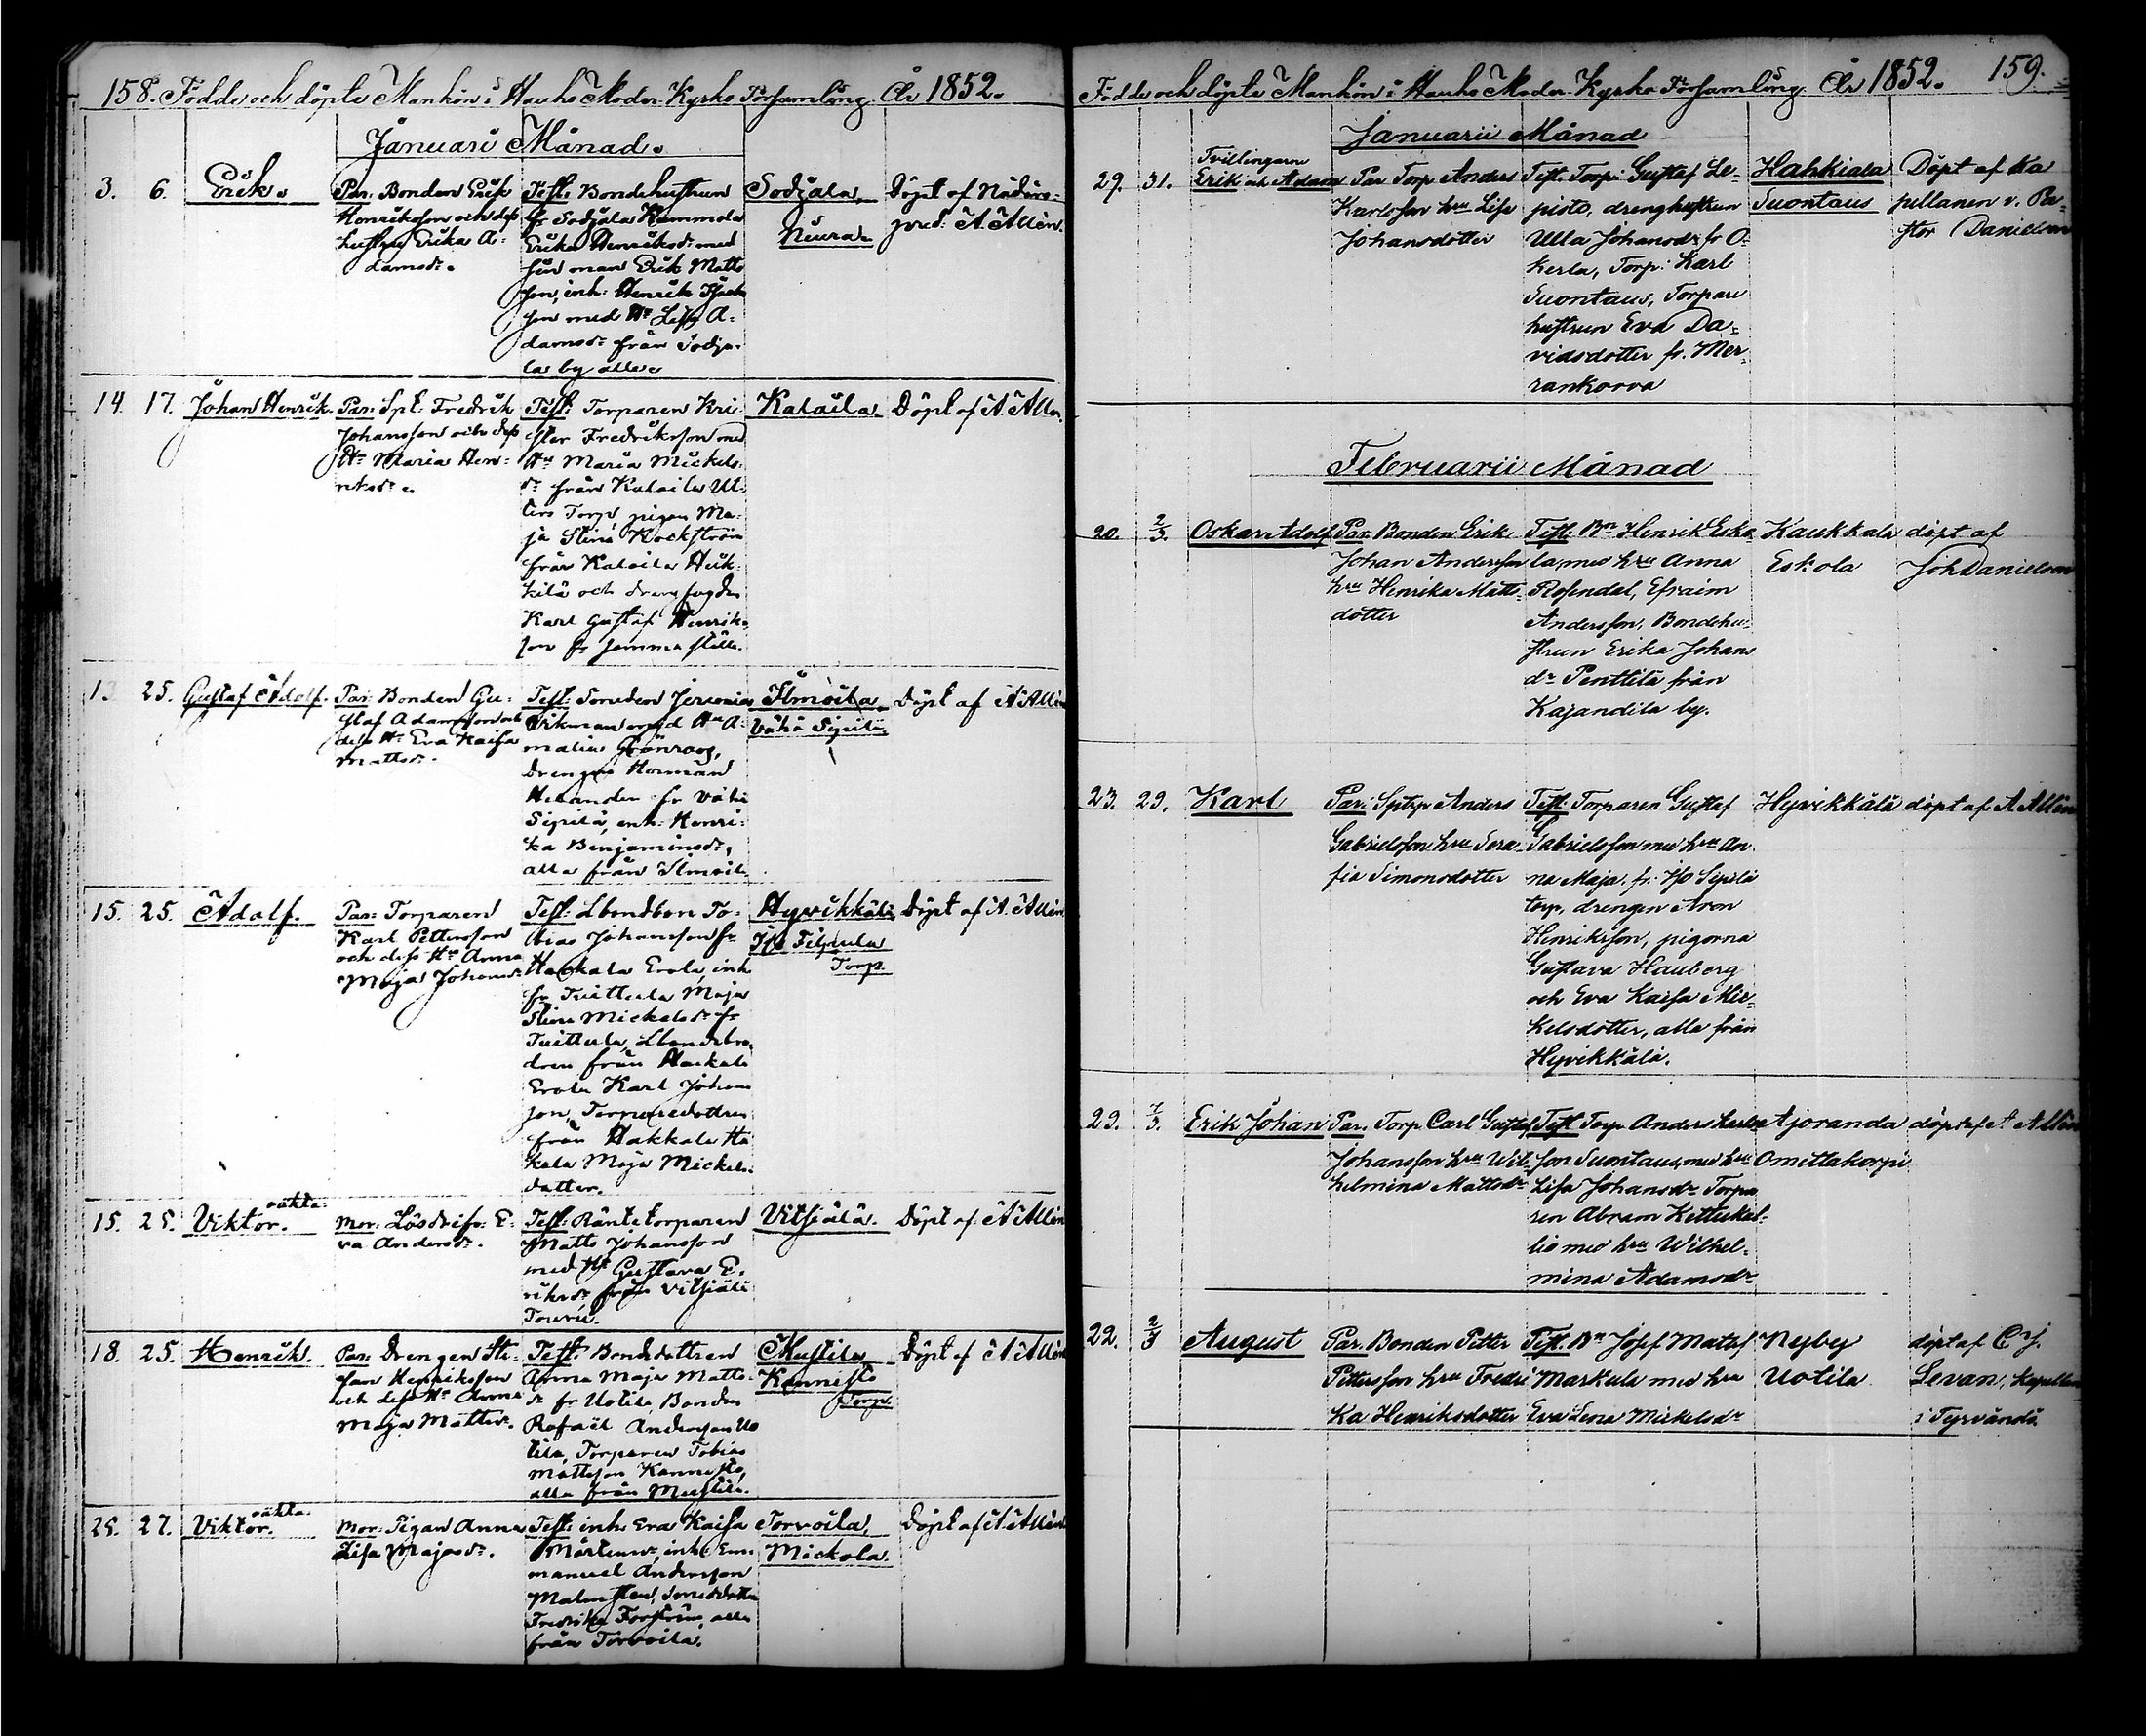 158. Födde och döpte Mankön i Hauho Moder-Kyrko Församling År 1852.
Januari Månad.
3. 6. Erik.
Par: Bonden Erik
Henriksson och dess
hustru Erika A-
damsdr.
Test: Bondehustrun
fr Sodjala
Erika Henriksdr med
sin man Erik Matts
son, inh: Henrik
son med Hu Lisa A-
damsdr från Sodja-
la by alla
Sodjala
Neura
Döpt af Nådårs-
pred: A Allén.
14. 17. Johan Henrik.
Par: Spt: Fredrik
Johansson och dess
Hu Maria Hen-
riksdr.
Test: Torparen Kri-
ster Fredriksson med
Hu Maria Mickels-
dr från Kalaila
Torp pigan Ma-
ja Stina
från Kalaila Huk-
kila och drengfogden
Karl Gustaf Henriks-
son fr samma ställe.
Kalaila
Döpt af A Allén.
13. 25. Gustaf Adolf.
Par: Bonden Gu-
staf Adamsson och
dess Hu Eva Kaisa
Mattsdr.
Test: Smeden Jeremias
Vikman med Hu A-
malia Grönroos,
drengen Herman
Helander fr Vähä
Sipilä, inh: Henri-
ka Benjaminsdr,
alla från Ilmoila
Ilmoila
Vähä Sipilä.
Döpt af A Allén
15. 25. Adolf.
Par: Torparen
Karl Pettersson
och dess Hu Anna
Maja Johansdr
Test: Lbondson To-
bias Johansson fr
Hackala Erola, inh
fr Tuittula Maja
Stina Mickelsdr fr
Tuittula, Lbondebro-
dren från Hackala
Erola Karl Johans
son, Torparedottren
från Hakkala Ha
kala Maja Mickels-
dotter.
Hyvikkälä
Iso Filpula
Torp.
Döpt af A. Allén
15. 25. Viktor. oäkta:
Mor: Lösdrifv: E-
va Andersdr.
Test: Räntetorparen
Matts Johansson
med Hu Gustava E-
riksdr från Vitsiälä
Touru.
Vitsiälä.
Döpt af A Allén
18. 25. Henrik.
Par: Drengen Ste-
fan Henriksson
och dess Hu Anna
Maja Mattsdr.
Test: Bondedottren
Anna Maja Matts-
dr fr Uotila, Bonden
Rafaël Andersson Uo
tila, Torparen Tobias
Mattsson Kannisto,
alla från Mustila.
Mustila
Kannisto
Torp.
Döpt af A Allén
25. 27. Viktor. oäkta.
Mor: Pigan Anna
Lisa Majasdr.
Test: inh. Eva Kaisa
Mårtensdr, inh: Em-
manuel Andersson
Malmsten, Smeddottr
Fredrika Forström, alla
från Torvoila.
Torvoila,
Mickola.
Döpt af A Allén
Födde och döpte Mankön i Hauho Moder-Kyrko Församling År 1852. 159.
Januarii Månad
29. 31. Tvillingarne
Erik och Adam
Par Torp Anders
Karlsson hru Lisa
Johansdotter
Test. Torp: Gustaf Le-
pisto, drenghustrun
Ulla Johansdr fr O-
kerla, Torp: Karl
Suontaus, Torpare
hustrun Eva Da-
vidsdotter fr. Mer-
rankorva
Hahkiala
Suontaus
Döpt af Ka
pellanen v. Pa-
stor Danielson
Februarii Månad
20. 2/3. Oskar Adolf
Par: Bonden Erik
Johan Andersson
hru Henrika Matts-
dotter
Test: Bn Henrik Esko
la, med hru Anna
Rosendal, Efraim
Andersson, Bondehu-
strun Erika Johans
dr Penttilä från
Kajandila by.
Kaukkala
Eskola
döpt af
Joh Danielson
23. 29. Karl
Par: Sptp Anders
Gabrielsson hru Sera-
fia Simonsdotter
Test: Torparen Gustaf
Gabrielsson med hru An-
na Maja. fr. Iso Sipilä
torp, drengen Aron
Henriksson, pigorna
Gustava Hauberg
och Eva Kaisa Mic-
kelsdotter, alla från
Hyvikkälä.
Hyvikkälä
döpt af A Allén
29. 7/3. Erik Johan
Par. Torp Carl Gustaf
Johansson hru Wil-
helmina Mattsdr
Test Torp Anders Karls-
son Suontaus, med hru
Lisa Johansdr Torpa
ren Abram Kettukal-
lio med hru Wilhel-
mina Adamsdr
Ajoranda
Omettakorpi
döpt af A Allén
22. 2/4 August
Par. Bonden Petter
Pettersson hru Fredri
ka Henriksdotter
Test. Bn Josef Matts
Markula med hru
Eva Lena Mickelsdr
Nyby
Uotila
döpt af C J.
Levan, Kapellan
i Tyrvändö.